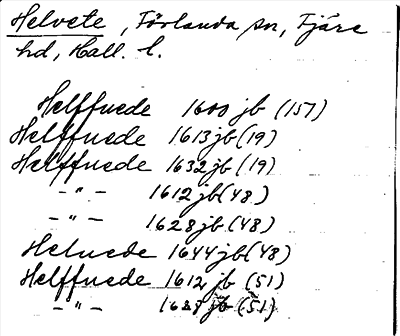 Helvete, Förlanda sn, Fjäre
hd, Hall. l.
Helffuede 1600 jb (157)
Helffuede 1613 jb (19)
Helffuede 1632 jb (19)
-"- 1612 jb (48)
-"- 1628 jb (48)
Heluede 1644 jb (48)
Helffuede 1612 jb (51)
-"- jb (51)